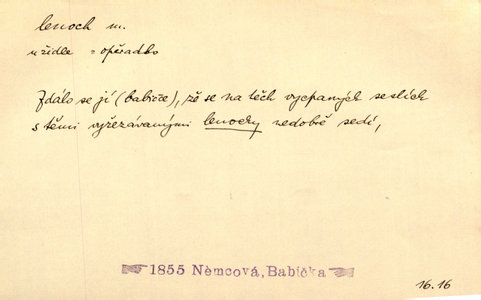 lenoch m.
u židle = opěradlo
Zdálo se jí (babičce), zě se na těch vycpaných seslích
s těmi vyřezávanými lenochy nedobře sedí,
1855 Němcová, Babička
16.16